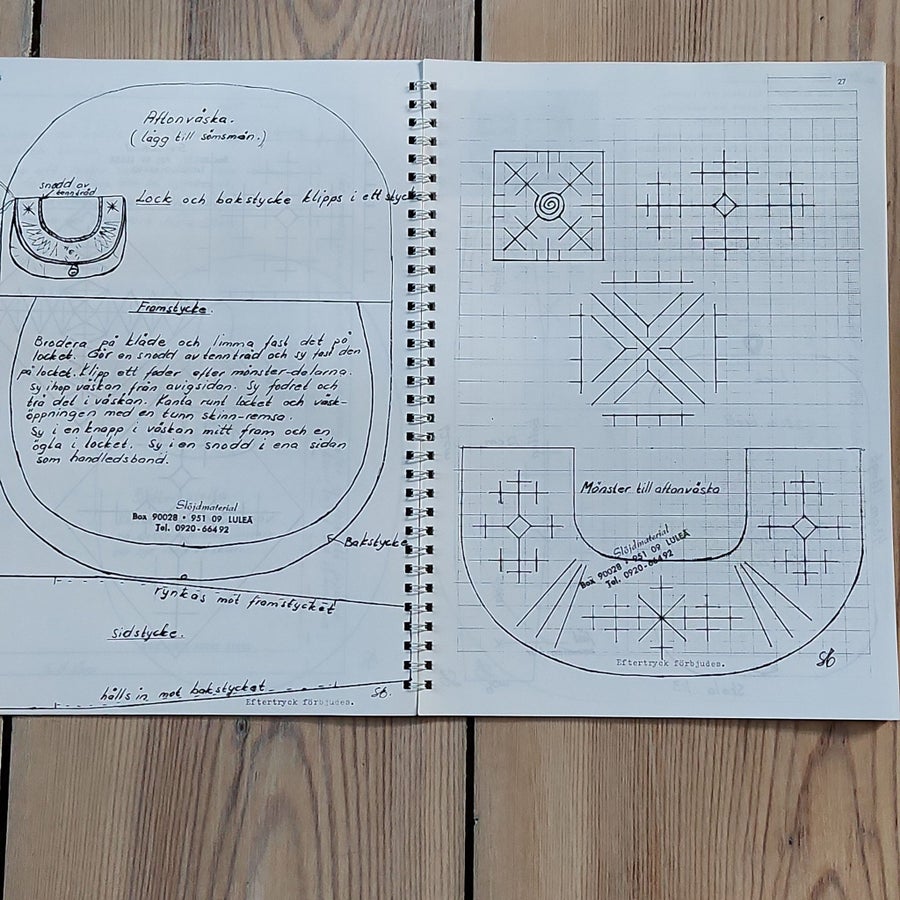 Aftonväska.
(lägg till sömsmån.)
snodd av
tenntråd
Lock och bakstycke klipps i ett styck
Framstycke.
Brodera på kläde och limma fast det på
locket. Gör en snodd av tenntråd och sy fast den
på locket. Klipp ett foder efter mönster-delarna.
Sy ihop väskan från avigsidan. Sy fodret och
trä det i väskan. Kanta runt locket och väsk-
öppningen med en tunn skinn-remsa.
Sy i en knapp i väskan mitt fram och en
ögla i locket. Sy i en snodd i ena sidan
som handledsband.
Slöjdmaterial
Box 90028 • 951 09 LULEÅ
Tel. 0920-66492
Bakstycke
rynkas mot framstycket
sidstycke.
hålls in mot bakstycket
Eftertryck förbjudes.
27
Mönster till aftonväska
Slöjdmaterial
Box 90028 • 951 09 LULEÅ
Tel. 0920-66492
Eftertryck förbjudes.